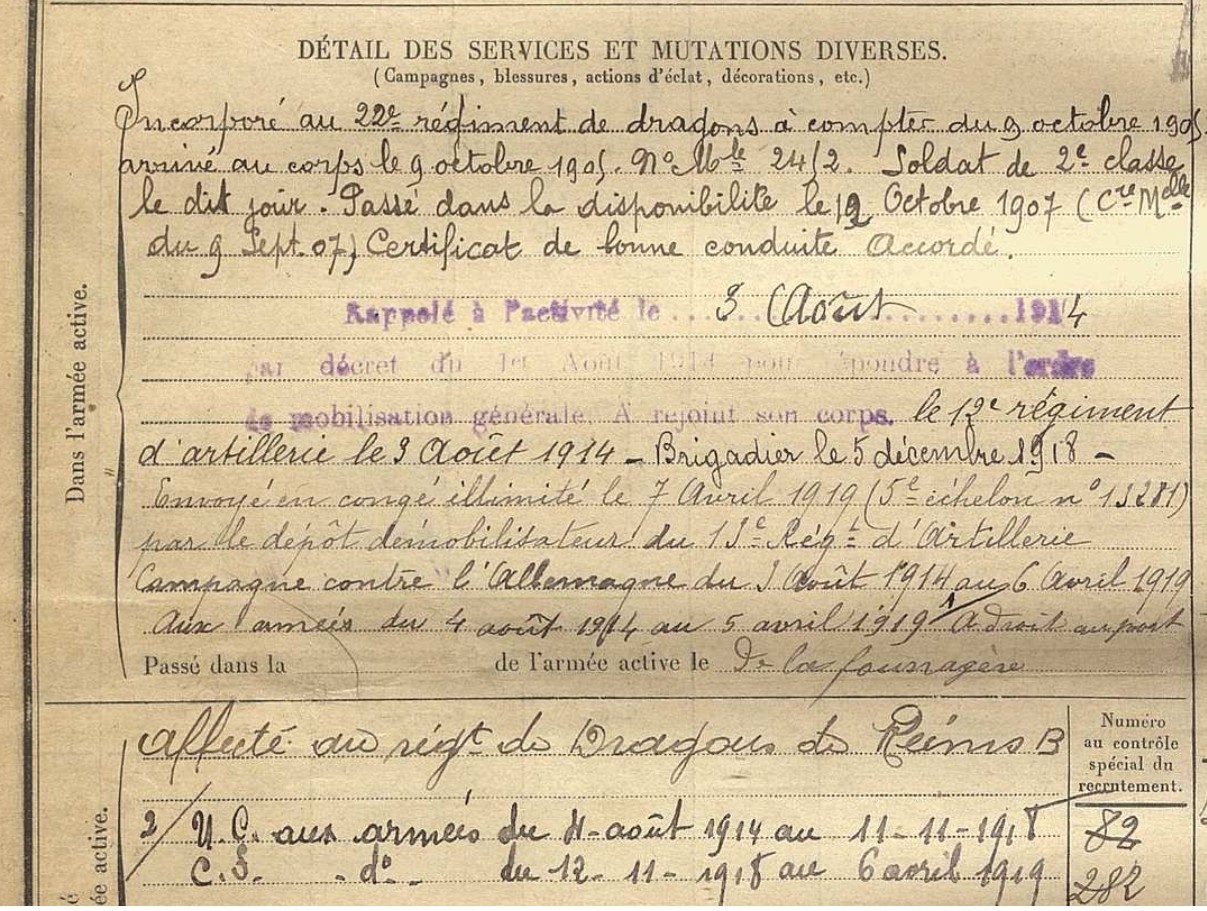 DÉTAIL DES SERVICES ET MUTATIONS DIVERSES.
(Campagnes, blessures, actions d'éclat, décorations, etc.)
Incorporé au 22e régiment de dragons à compter du 9 octobre 1905.
arrivé au corps le 9 octobre 1905. No Mle 2412. Soldat de 2e classe
le dit jour. Passé dans la disponibilite le 12 Octobre 1907 (Cre Melle
du 9 Sept. 07) Certificat de bonne conduite Accordé.
Rappelé à l'activité le 3 Août 1914
par décret du 1er Août 1914 pour répondre à l'ordre
de mobilisation générale. A rejoint son corps. le 12e régiment
d'artillerie le 3 Août 1914 - Brigadier le 5 décembre 1918 -
Envoyé en congé illimité le 7 Avril 1919 (5e échelon no 13281)
par le dépôt démobilisateur du 13e Régt d'Artillerie
Campagne contre l'Allemagne du 3 Août 1914 au 6 Avril 1919
Aux armées du 4 août 1914 au 5 avril 1919 1/ A droit au port
Passé dans la de l'armée active le De la fourragère
Dans l'armée active.
affecté au régt de Dragons de Reims B
Numéro
au contrôle
spécial du
recrutement.
2/ U.C. aux armées du 4-août 1914 au 11-11-1918
82
C.S. - do - du 12-11-1918 au 6 avril 1919
282
ée active.